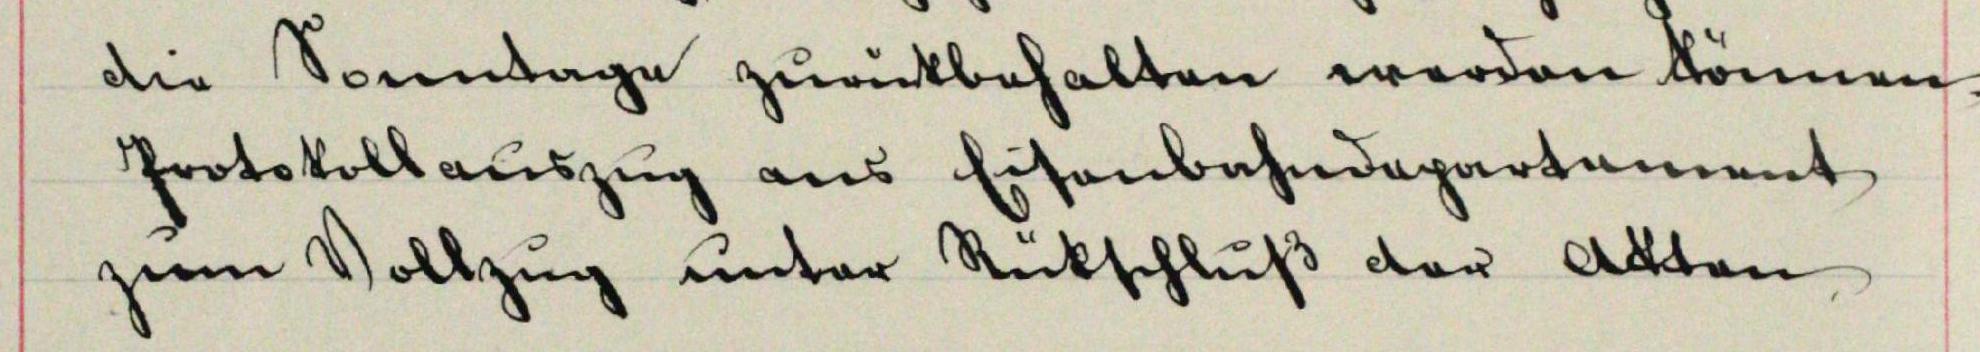 die Sonntage zurükbehalten werden können.
Protokollauszug ans Eisenbahndepartement
zum Vollzug unter Rükschluß der Akten.